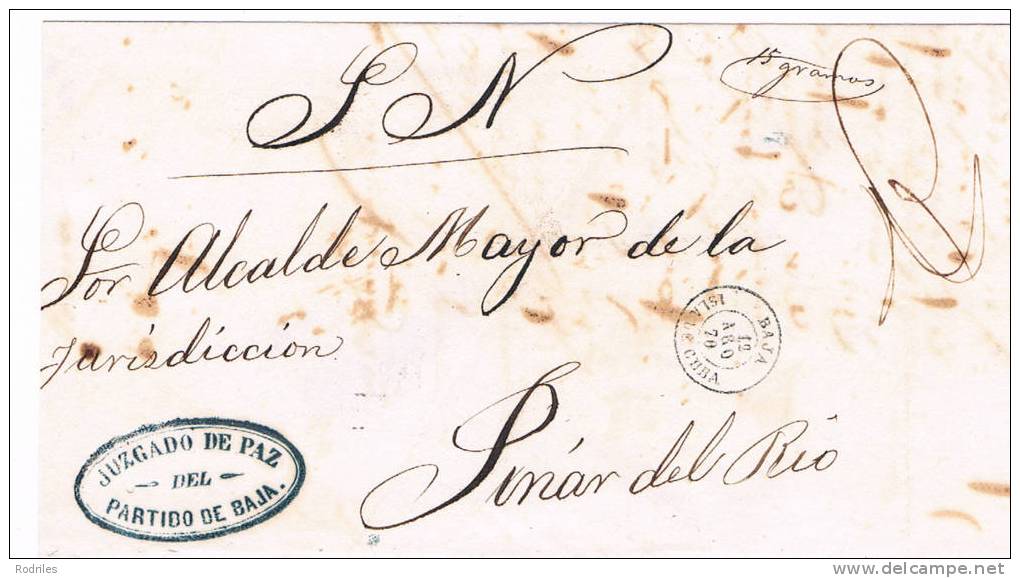 S N
15 gramos
Sor Alcalde Mayor de la
Jurisdiccion
BAJA
19
AGO
70
ISLA DE CUBA
Pinár del Rio
JUZGADO DE PAZ
DEL
PARTIDO DE BAJA.
Rodriles
delcampe.net